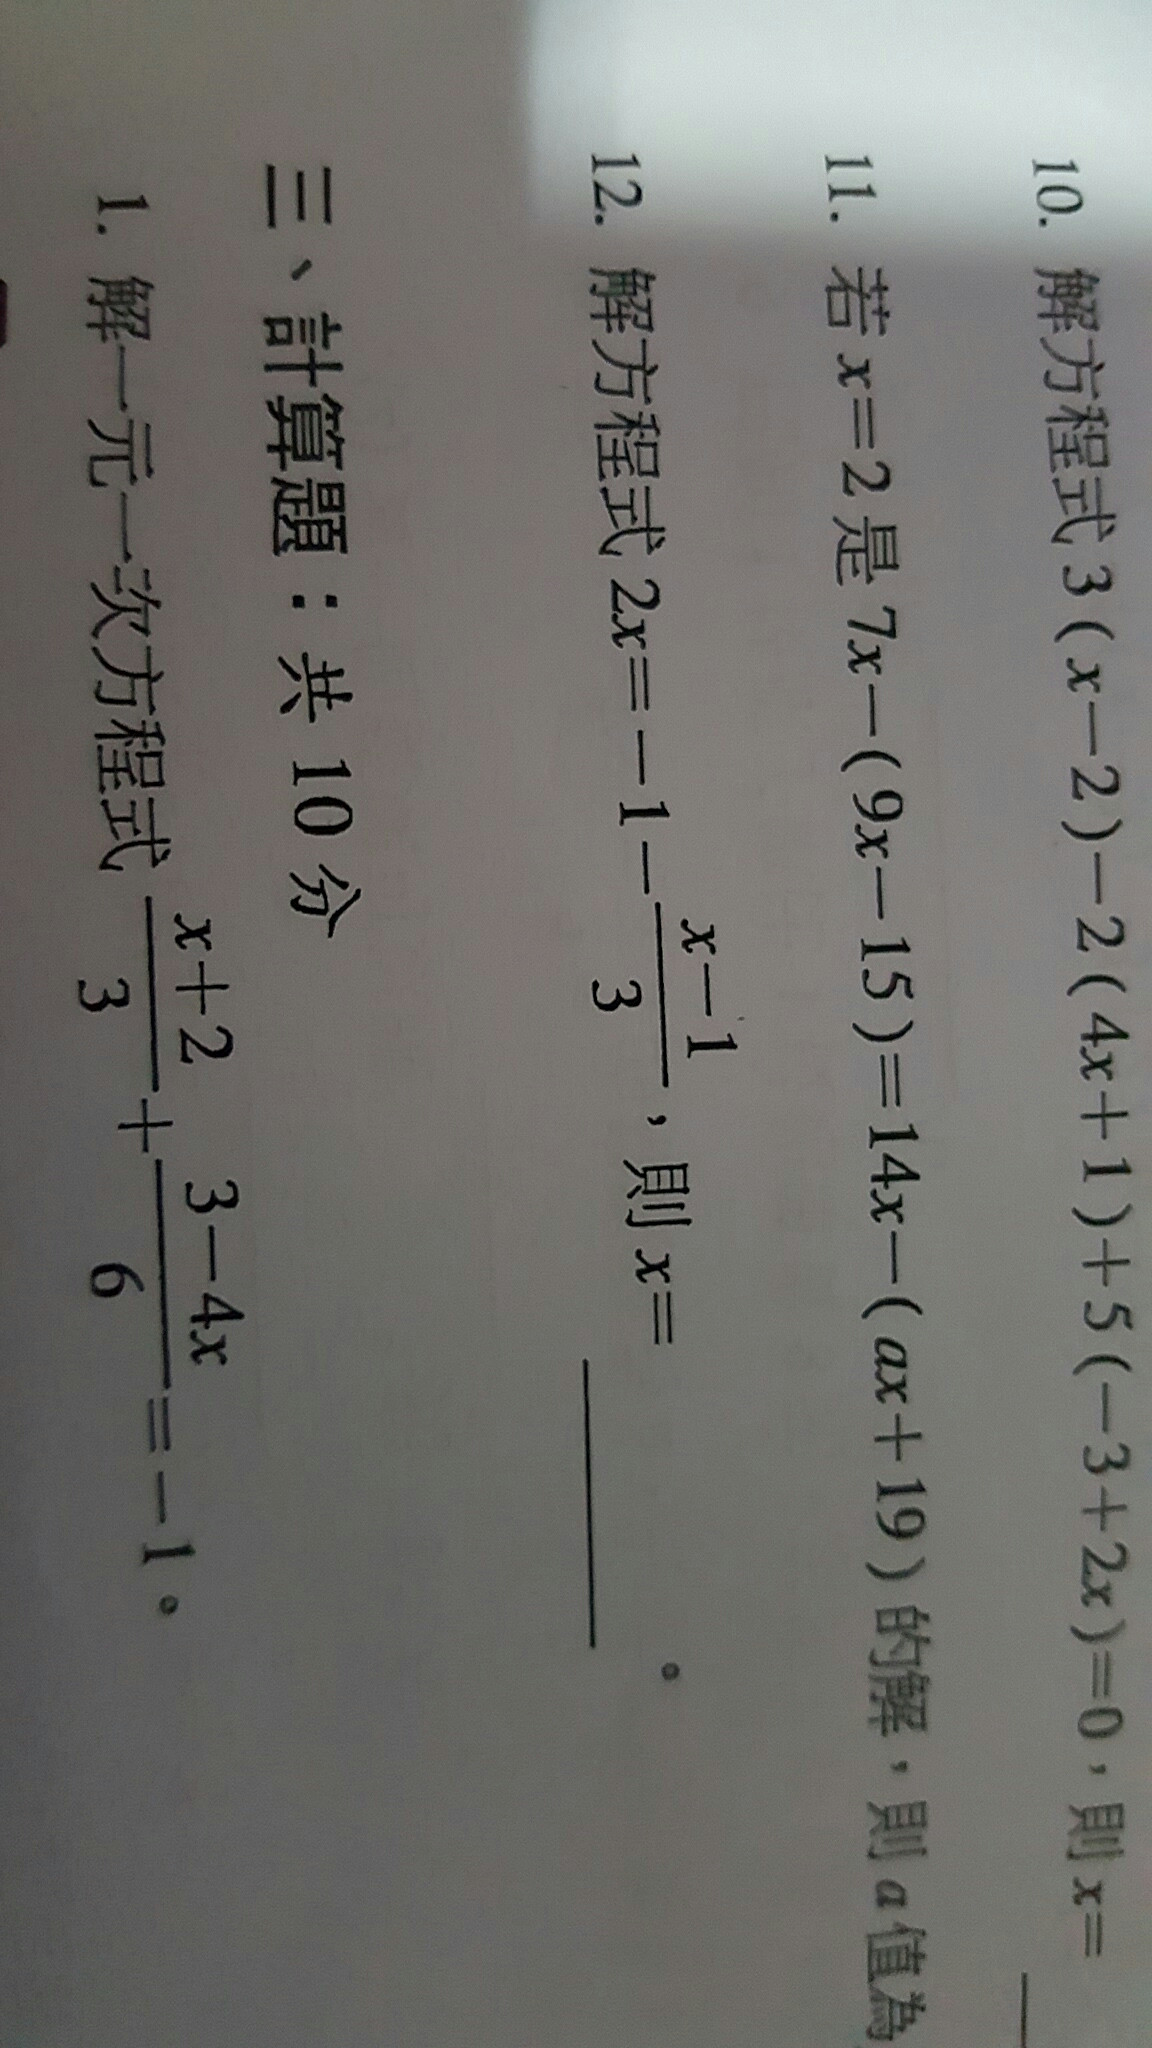 10. 解方程式 3(x－2)－2(4x＋1)＋5(－3＋2x)＝0，則 x＝
11. 若 x＝2 是 7x－(9x－15)＝14x－(ax＋19) 的解，則 a 值為
12. 解方程式 2x＝－1－\frac{x－1}{3}，則 x＝＿＿＿＿。
三、計算題：共 10 分
1. 解一元一次方程式 \frac{x＋2}{3}＋\frac{3－4x}{6}＝－1。